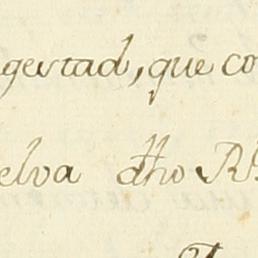 gestad, que co
elva dho R